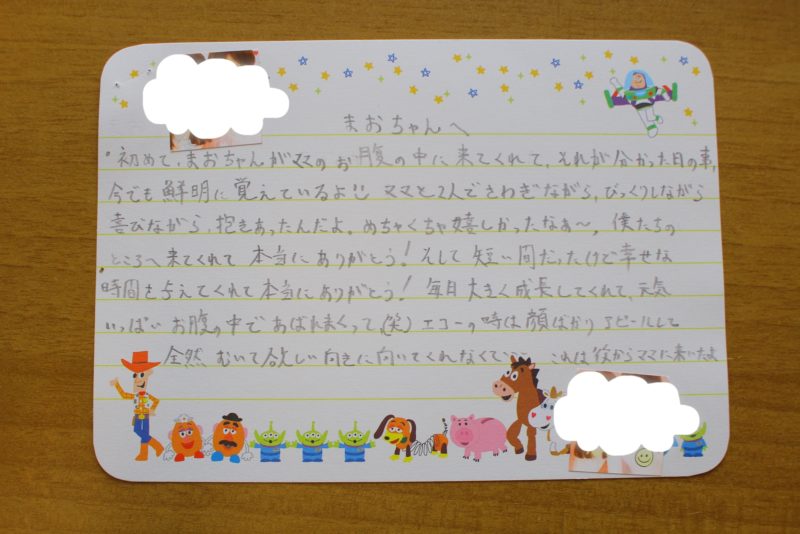 まおちゃんへ
初めて、まおちゃんがママのお腹の中に来てくれて、それが分かった日の事、
今でも鮮明に覚えているよ ママと2人でさわぎながら、びっくりしながら
喜びながら、抱きあったんだよ。めちゃくちゃ嬉しかったなぁ〜。僕たちの
ところへ来てくれて 本当にありがとう! そして 短い間だったけど幸せな
時間を与えてくれて本当にありがとう! 毎日大きく成長してくれて、元気
いっぱい お腹の中であばれまくって、(笑) エコーの時は顔ばかりアピールして
全然 むいて欲しい向きに向いてくれなくて・・・ これは後からママに